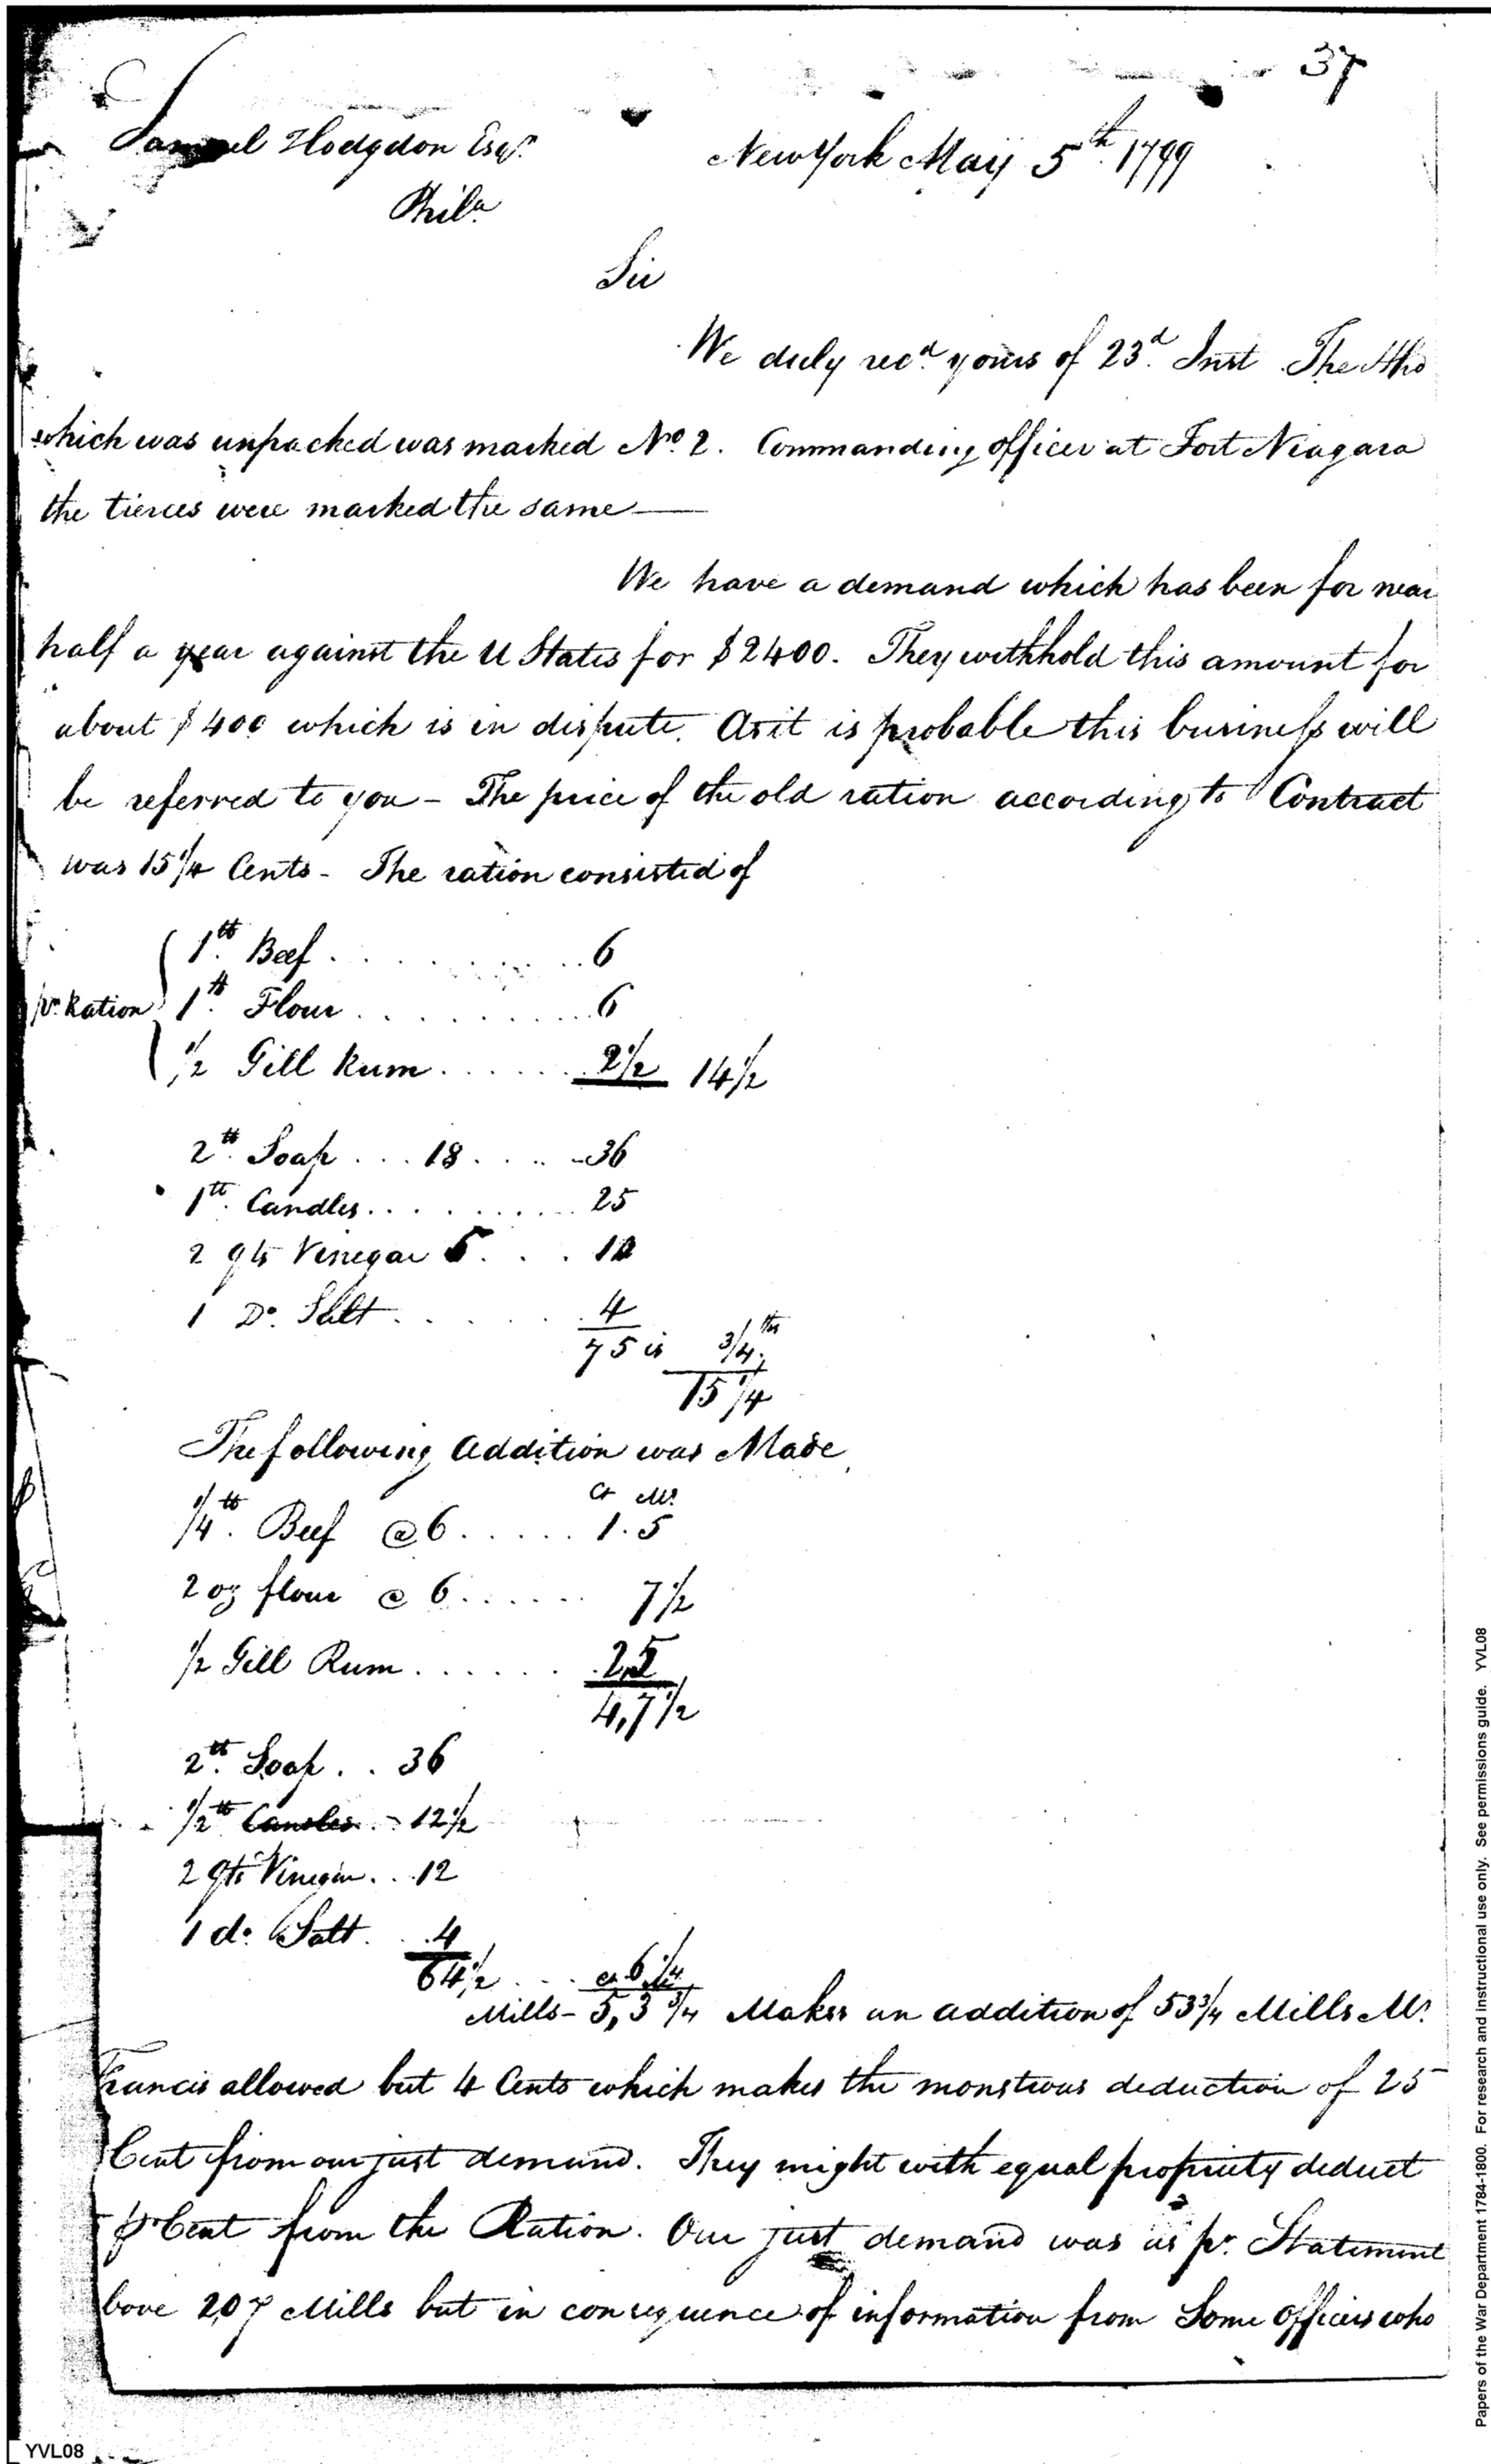 37
Samuel Hodgdon Esqr. New York May 5th. 1799
Phila
Sir
We duly recd. yours of 23d. Inst The Hhd
which was unpacked was marked No. 2. Commanding officer at Fort Niagara
the tierces were marked the same —
We have a demand which has been for near
half a year against the U States for $2400. They withhold this amount for
about $400 which is in dispute. As it is probable this business will
be referred to you - The price of the old ration according to Contract
was 15 1/4 Cents - The ration consisted of
1 lb. Beef . . . . . . . . . . 6
pr. Ration 1 lb. Flour . . . . . . . . . . 6
1/2 Gill Rum . . . . . . 2 1/2 14 1/2
2 lb. Soap . . . 18 . . . . - 36
1 lb. Candles . . . . . . . . . . 25
2 qts Vinegar 5 . . . 10
1 Do. Salt . . . . . . 4
75 is 3/4 ths
15 1/4
The following Addition was Made
Ct Ms.
1/4 lb. Beef @ 6 . . . . . 1.5
2 oz flour @ 6 . . . . . . 7 1/2
1/2 Gill Rum . . . . . . . 2,5
4,7 1/2
2 lb. Soap . . 36
1/2 lb Candles . - 12 1/2
2 Qts Vinegar . . 12
1 do. Salt . . 4
64 1/2 . . . 6 1/4
Mills - 5,3 3/4 Makes an addition of 53 3/4 Mills Mr.
Francis allowed but 4 Cents which makes the monstrous deduction of 25
Cent from our just demand. They might with equal propriety deduct
pr Cent from the Ration. Our just demand was as pr. Statement
bove 207 Mills but in consequence of information from Some officers who
Papers of the War Department 1784-1800. For research and instructional use only. See permissions guide. YVL08
YVL08